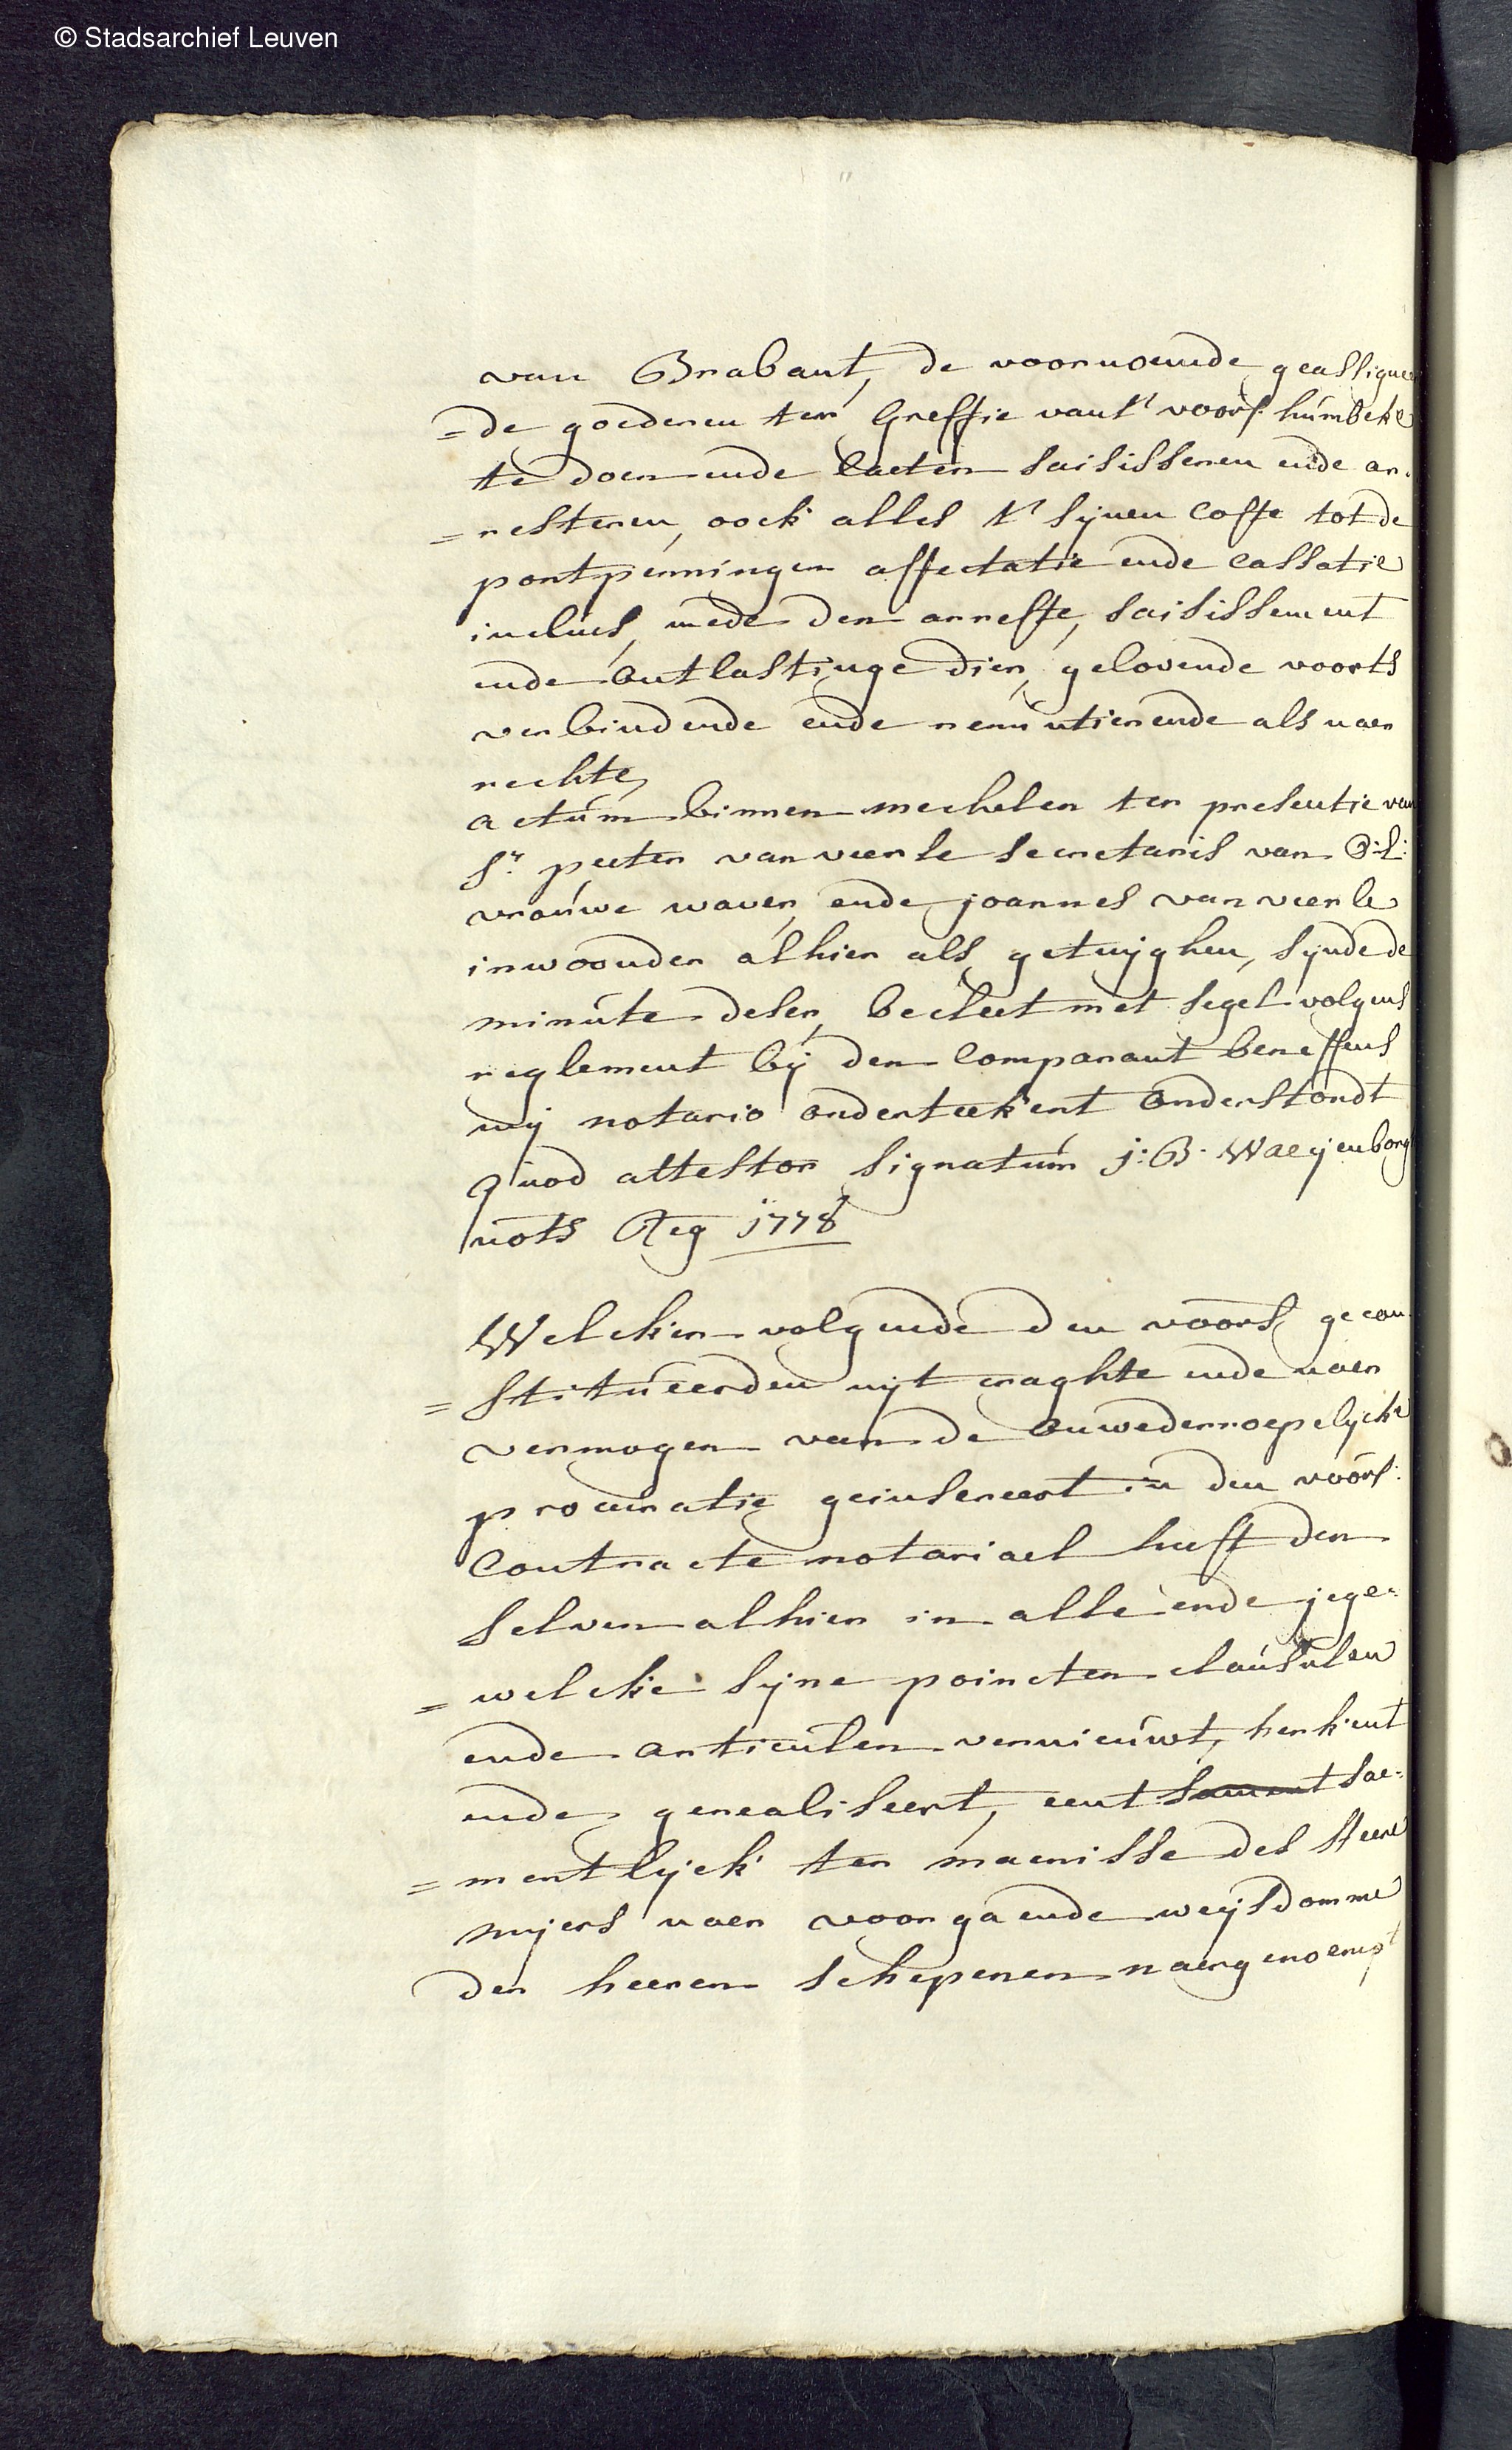 © Stadsarchief Leuven
van Brabant, de voornoemde geassigneer
=de goederen ter Greffie van't voors: húmbeke
te doen ende laeten saisisseren ende ar-
=resteren, oock alles t' sijnen coste tot de
pontpenningen affectatie ende cassatie
inclús, mede den arreste, saisissement
ende ontlastinge dier, gelovende voorts
verbindende ende renúntierende als naer
rechte,
actúm binnen mechelen ter presentie van
Sr. peeter van veerle secretaris van O:L:
vroúwe waver, ende joannes van veerle
inwoonder alhier als getuijghen, sijnde de
minúte deser, becleet met segel volgens
reglement bij den Comparant beneffens
mij notario onderteekent Onderstondt
qúod attestor signatúm j: B: Waeijenborg
nots Reg 1778
Welcken volgende den voors geeon-
=stitúeerden uijt craghte ende naer
vermogen van de onwederroepelijcke
procúratie geinsereert in den voors:
Contracte notariael heeft den
selven alhier in alle ende jege-
=welcke sijne poincten claúsúlen
ende articúlen vernieúwt, herkent
ende gerealiseert, eent sament sae-
=mentlijck ter maenisse des Heere
meijers naer voorgaende weijsdomme
der heeren schepenen naergenoemt